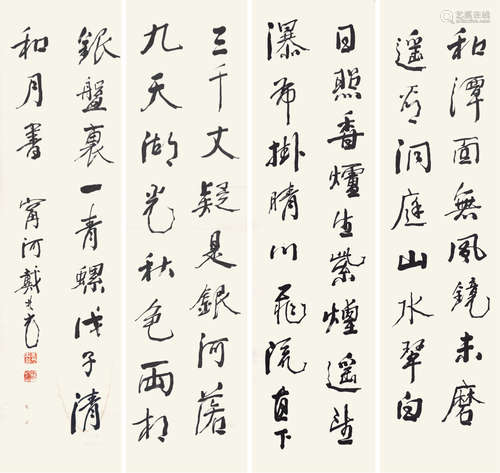 和潭面無風鏡未磨
遥看洞庭山水翠白
日照香爐生紫煙遥望
瀑布掛晴川飛流直下
三千丈疑是銀河落
九天湖光秋色兩相
銀盤裏一青螺戊子清
和月書
甯河戴